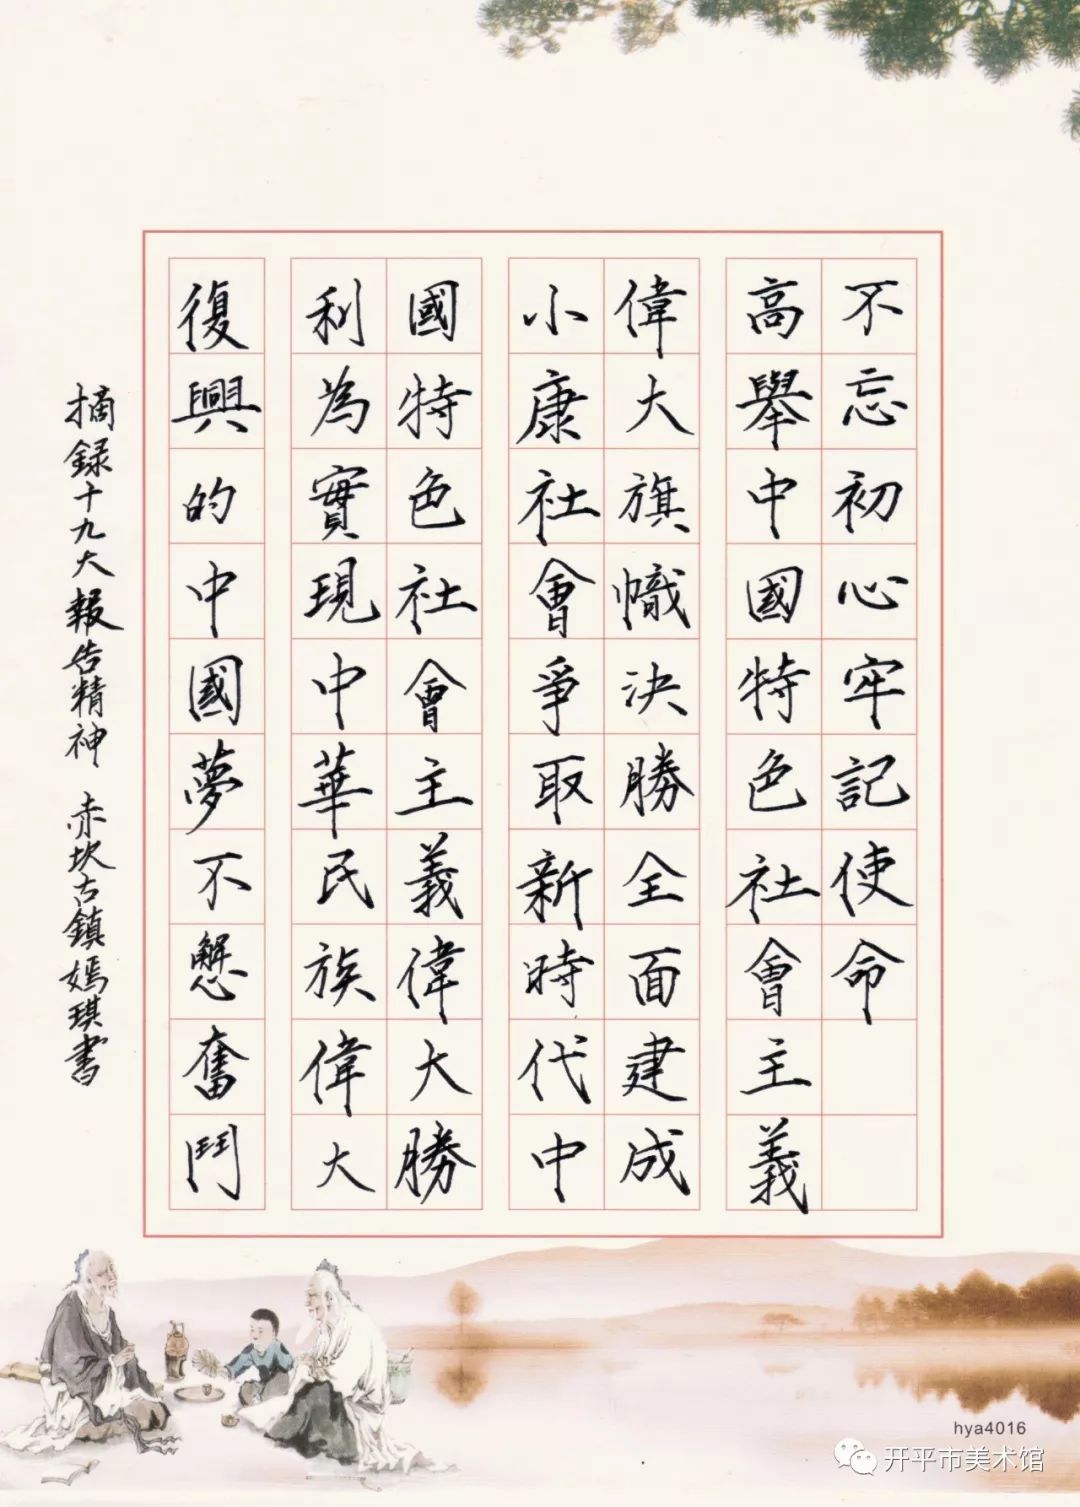 不忘初心牢記使命
高舉中國特色社會主義
偉大旗幟決勝全面建成
小康社會爭取新時代中
國特色社會主義偉大勝
利為實現中華民族偉大
復興的中國夢不懈奮鬥
摘録十九大報告精神 赤坎古鎮嫣琪書
hya4016
开平市美术馆